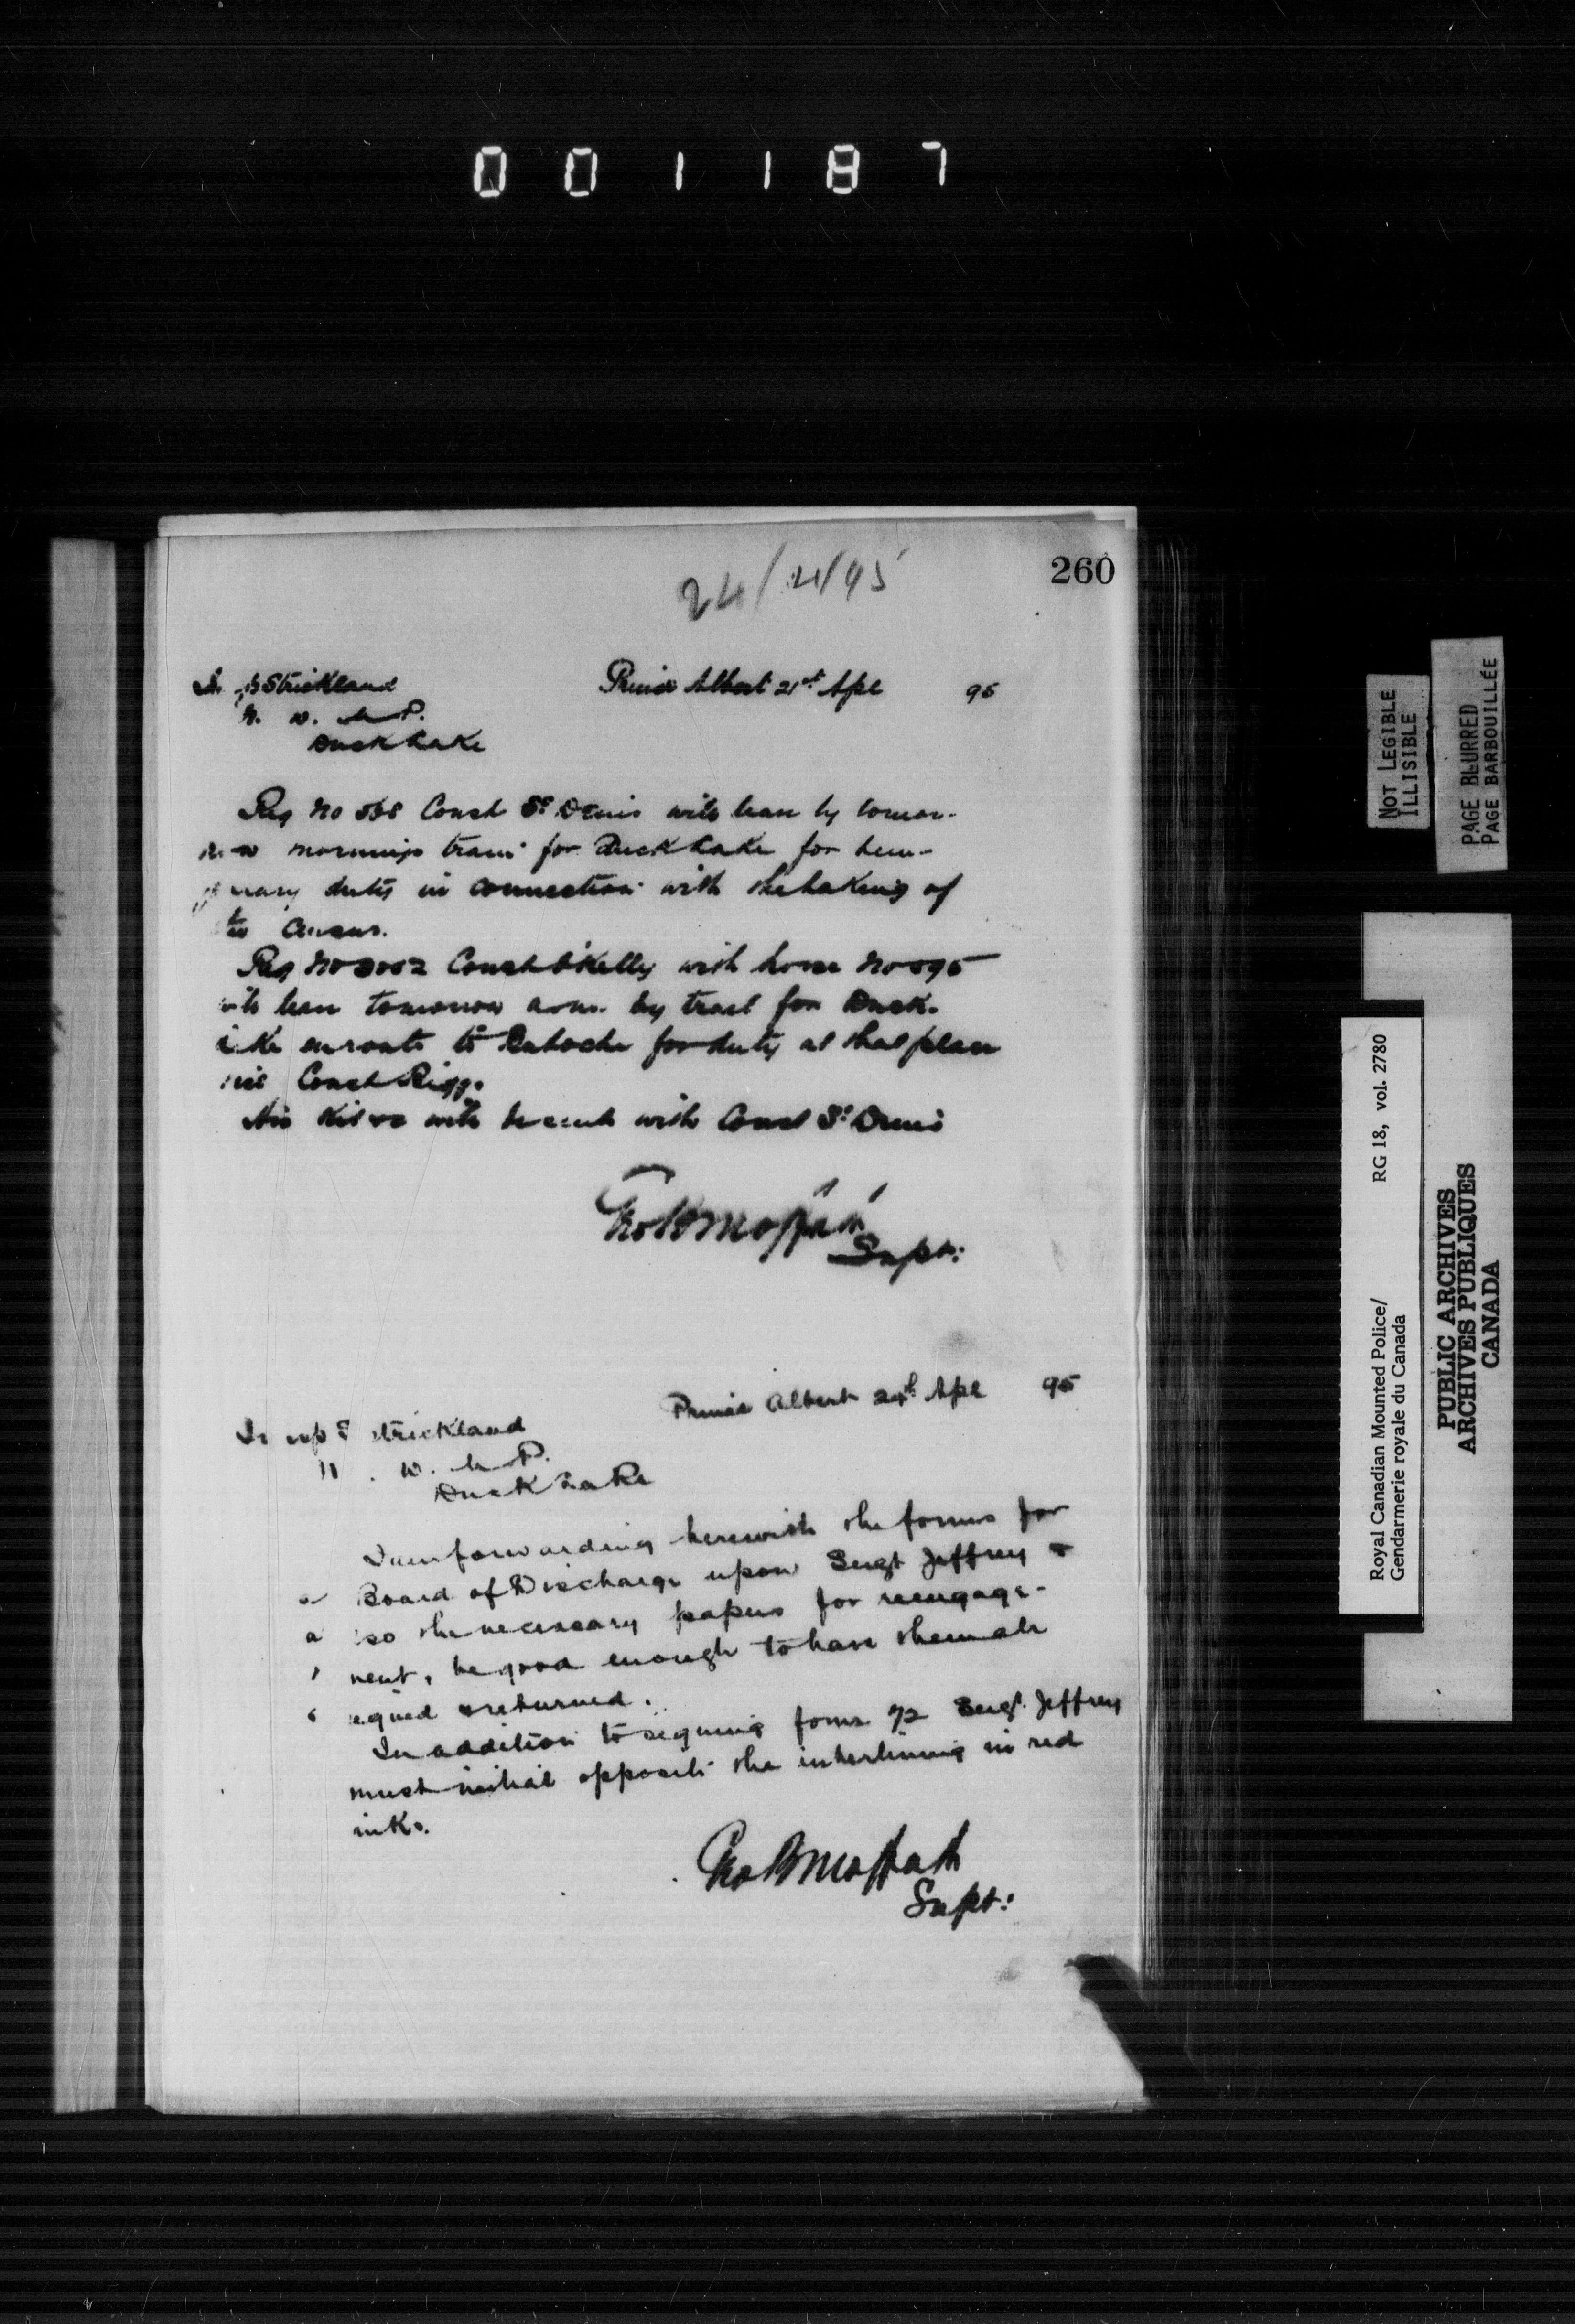 001187
260
24/4/95
Strickland
Prince Albert 21st Apl 95
N. W. M P.
Duck Lake
Reg No Const St Denis will leave by tomor-
row mornings train for Duck Lake for tem-
porary duty in connection with the taking of
the Census.
Reg No Const O'Kelly with horse No 895
will leave tomorrow a.m. by trail for Duck
Lake enroute to Batoche for duty at that place
Const Rigg.
His Kit will be sent with Const St Denis
Geo B Moffatt
Supt:
Prince Albert 24th Apl 95
Insp Strickland
N. W. M P.
Duck Lake
I am forwarding herewith the forms for
a Board of Discharge upon Sergt Jeffrey &
also the necessary papers for reengage-
ment, be good enough to have them all
signed & returned.
In addition to signing form 72 Sergt Jeffrey
must initial opposite the interlining in red
ink.
Geo B Moffatt
Supt:
NOT LEGIBLE
ILLISIBLE
PAGE BLURRED
PAGE BARBOUILLÉE
Royal Canadian Mounted Police/ RG 18, vol. 2780
Gendarmerie royale du Canada
PUBLIC ARCHIVES
ARCHIVES PUBLIQUES
CANADA